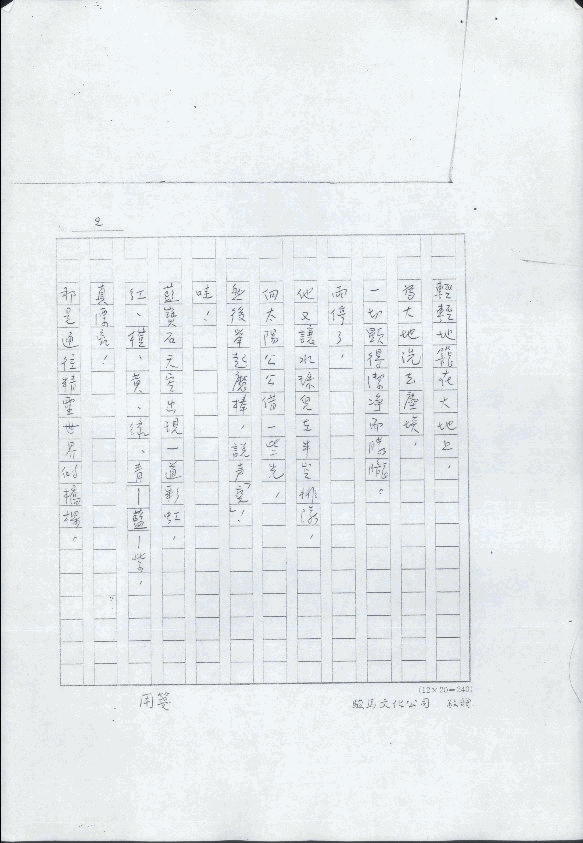 2
輕輕地籠在大地上，
為大地洗去塵埃，
一切顯得潔淨而朦朧。
雨停了，
他又讓水珠兒在半空排隊，
向太陽公公借一些光，
然後舉起魔棒，說声「變」！
哇！
藍寶石天空出現一道彩虹，
紅、橙、黃、綠、青—藍—紫，
真漂亮！
那是通往精靈世界的橋樑。
(12×20=240)
駿馬文化公司 敬贈
用箋